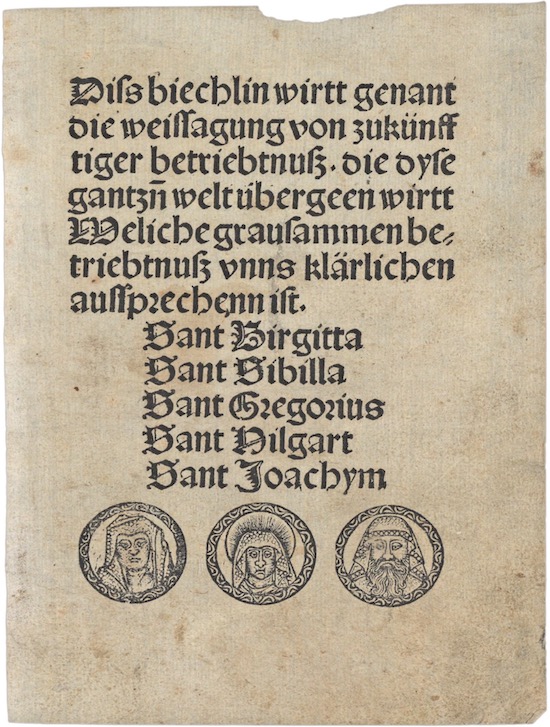 Diſs biechlin wirtt genant
die weiſſagung von zukünff
tiger betriebtnuß. die dyſe
gantzn̄ welt übergeen wirtt
Weliche grauſammen be⸗
triebtnuß vnns klärlichen
auſſprechenn iſt.
Sant Birgitta
Sant Sibilla
Sant Gregorius
Sant Hilgart
Sant Joachym